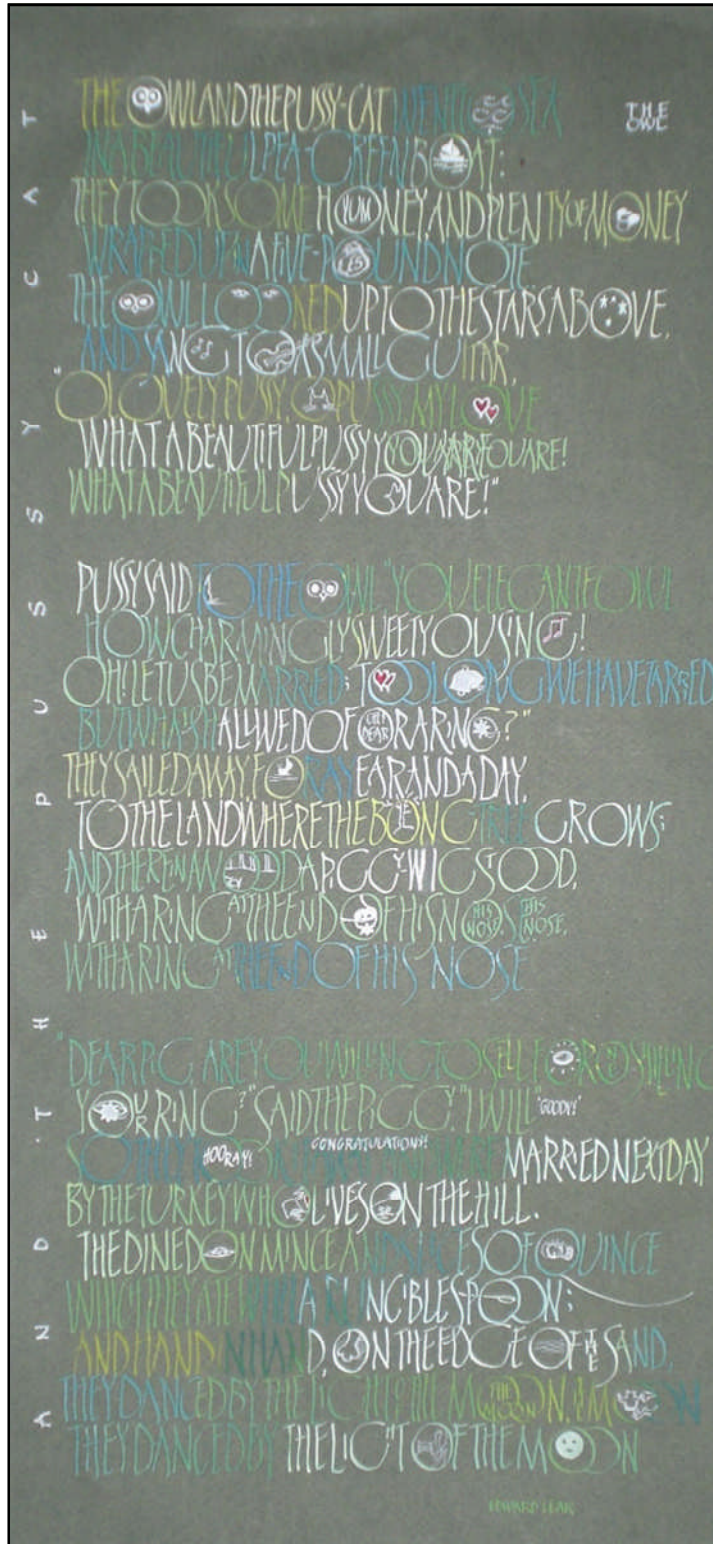 THE OWL
AND THE PUSSY CAT
THE OWL AND THE PUSSY-CAT WENT TO SEA
IN A BEAUTIFUL PEA-GREEN BOAT:
THEY TOOK SOME HONEY, AND PLENTY OF MONEY
YUM
WRAPPED UP IN A FIVE-POUND NOTE
£5
THE OWL LOOKED UP TO THE STARS ABOVE,
AND SANG TO A SMALL GUITAR,
"O LOVELY PUSSY, O PUSSY, MY LOVE
WHAT A BEAUTIFUL PUSSY YOU ARE YOU ARE!
WHAT A BEAUTIFUL PUSSY YOU ARE!"
PUSSY SAID TO THE OWL "YOU ELEGANT FOWL
HOW CHARMINGLY SWEET YOU SING!
OH! LET US BE MARRIED; TOO LONG WE HAVE TARRIED
BUT WHAT SHALL WE DO FOR A RING?"
OH! DEAR
THEY SAILED AWAY, FOR A YEAR AND A DAY,
TO THE LAND WHERE THE BONG TREE GROWS;
AND THERE IN A WOOD A PIGGY-WIG STOOD,
WITH A RING AT THE END OF HIS NOSE HIS NOSE,
HIS NOSE
WITH A RING AT THE END OF HIS NOSE
"DEAR PIG, ARE YOU WILLING TO SELL FOR ONE SHILLING
YOUR RING?" SAID THE PIGGY, "I WILL" "GOODY!"
SO THEY TOOK IT AWAY AND WERE MARRIED NEXT DAY
HOORAY!
CONGRATULATIONS!
BY THE TURKEY WHO LIVES ON THE HILL.
THE DINED ON MINCE AND SLICES OF QUINCE
WHICH THEY ATE WITH A RUNCIBLE SPOON;
AND HAND IN HAND, ON THE EDGE OF THE SAND,
THEY DANCED BY THE LIGHT OF THE MOON, THE MOON
THE MOON
THEY DANCED BY THE LIGHT OF THE MOON
EDWARD LEAR